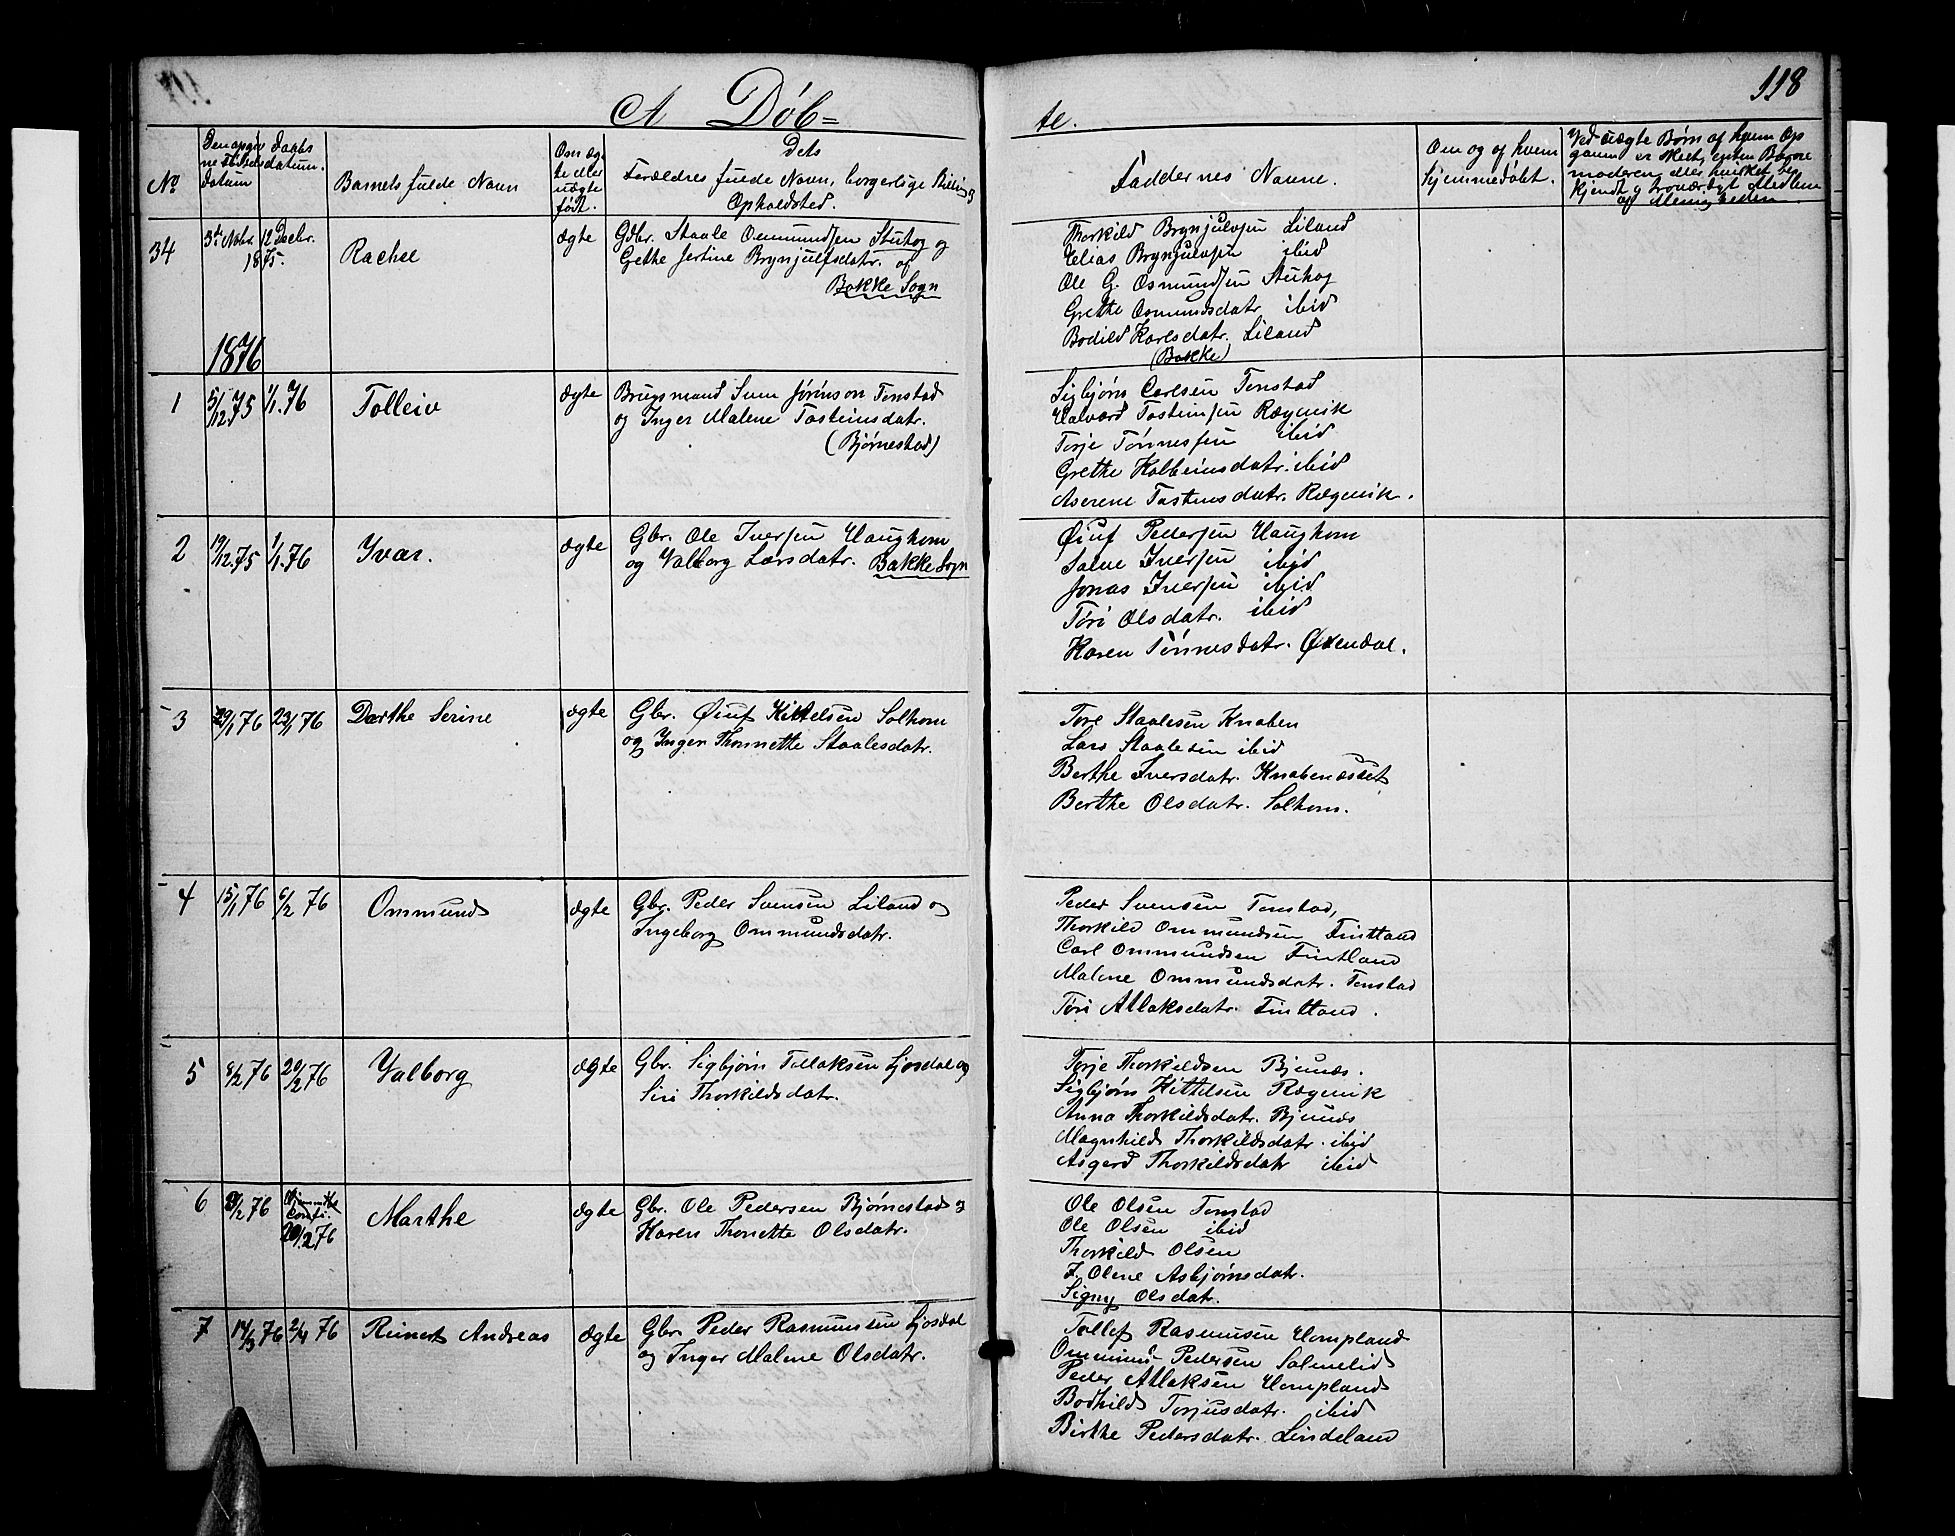 118
A Døb=
te.
No
Den opgiv
ne Fødsels
datum
Daabs
datum.
Barnets fulde Navn
Om æg
te eller
uægte
født.
Dets
Forældres fulde Navn, borgerlige Stilling og
Opholdsted.
Faddernes Navne.
Om og af hvem
hjemmedøbt.
Ved uægte Børn af hvem Op
gaven er skeet, enten Barne
moderen, eller hvilket be
kjendt og troværdigt Medlem
af Menigheden
34
3die Novbr.
12 Decbr.
1875.
Rachel
ægte
Gbr. Staale Ommundsen Stuhog og
Gethe Jertine Brynjulfsdatr. af
Bakke Sogn
Thorkild Brynjulvsen Liland
Elias Brynjulvsen ibid
Ole G. Osmundsen Stuhog
Grethe Osmundsdatr ibid
Bodild Karlsdatr. Liland
(Bakke)
1876
1
5/12.75
1/1.76
Tolleiv
ægte
Brugsmand Sven Jørinson Tonstad
og Inger Malene Tosteinsdatr.
(Bjørnestad)
Sigbjørn Carlsen Tonstad
Halvard Tosteinsen Rægevik
Terje Tønnessen ibid
Grethe Kolbeinsdatr. ibid
Aserene Tosteinsdatr. Rægevik.
2
19/12.75
1/1.76
Yvar.
ægte
Gbr. Ole Iversen Haughom
og Valborg Larsdatr. Bakke Sogn
Øiuf Pedersen Haughom
Salve Iversen ibid
Jonas Iversen ibid
Tøri Olsdatr. ibid
Karen Tønnesdatr. Øxendal.
3
76
23/1 76
Dorthe Serine
ægte
Gbr. Øiuf Kittelsen Solhom
og Inger Thonnette Staalesdatr.
Tore Staalesen Knaben
Lars Staalesen ibid
Berthe Iversdatr. Knabenæsset
Berthe Olsdatr. Solhom.
4
15/1 76
6/2 76
Ommund
ægte
Gbr. Peder Svensen Liland og
Ingeborg Ommundsdatr.
Peder Svensen Tonstad,
Thorkild Ommundsen Fintland
Carl Ommundsen Fintland
Malene Ommundsdatr. Tonstad
Tøri Atlaksdatr. Fintland.
5
8/2 76
20/2 76
Valborg
ægte
Gbr. Sigbjørn Tellaksen Ljosdal og
Siri Thorkildsdatr.
Terje Thorkildsen Bjunæs.
Sigbjørn Kittelsen Rægevik
Anna Thorkildsdatr. Bjunæs
Magnhild Thorkildsdatr. ibid
Asgerd Thorkildsdatr ibid
6
76
20/2 76
Marthe
ægte
Gbr. Ole Pedersen Bjørnestad og
Karen Thonette Olsdatr.
Ole Olsen Tonstad
Ole Olsen ibid
Thorkild Olsen
J. Olene Asbjørnsdatr.
Signy Olsdatr.
7
14/3 76
2/4 76
Reinert Andreas
ægte
Gbr. Peder Rasmussen Ljosdal
og Inger Malene Olsdatr.
Tollef Rasmusen Hompland
Ommund Pedersen Salmelid
Peder Atlaksen Hompland
Bodhild Torjusdatr. ibid
Birthe Pedersdatr. Lindeland